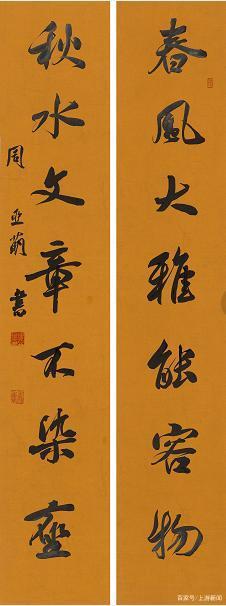 春風大雅能容物
秋水文章不染塵
周亚萌書
百家号/上游新闻